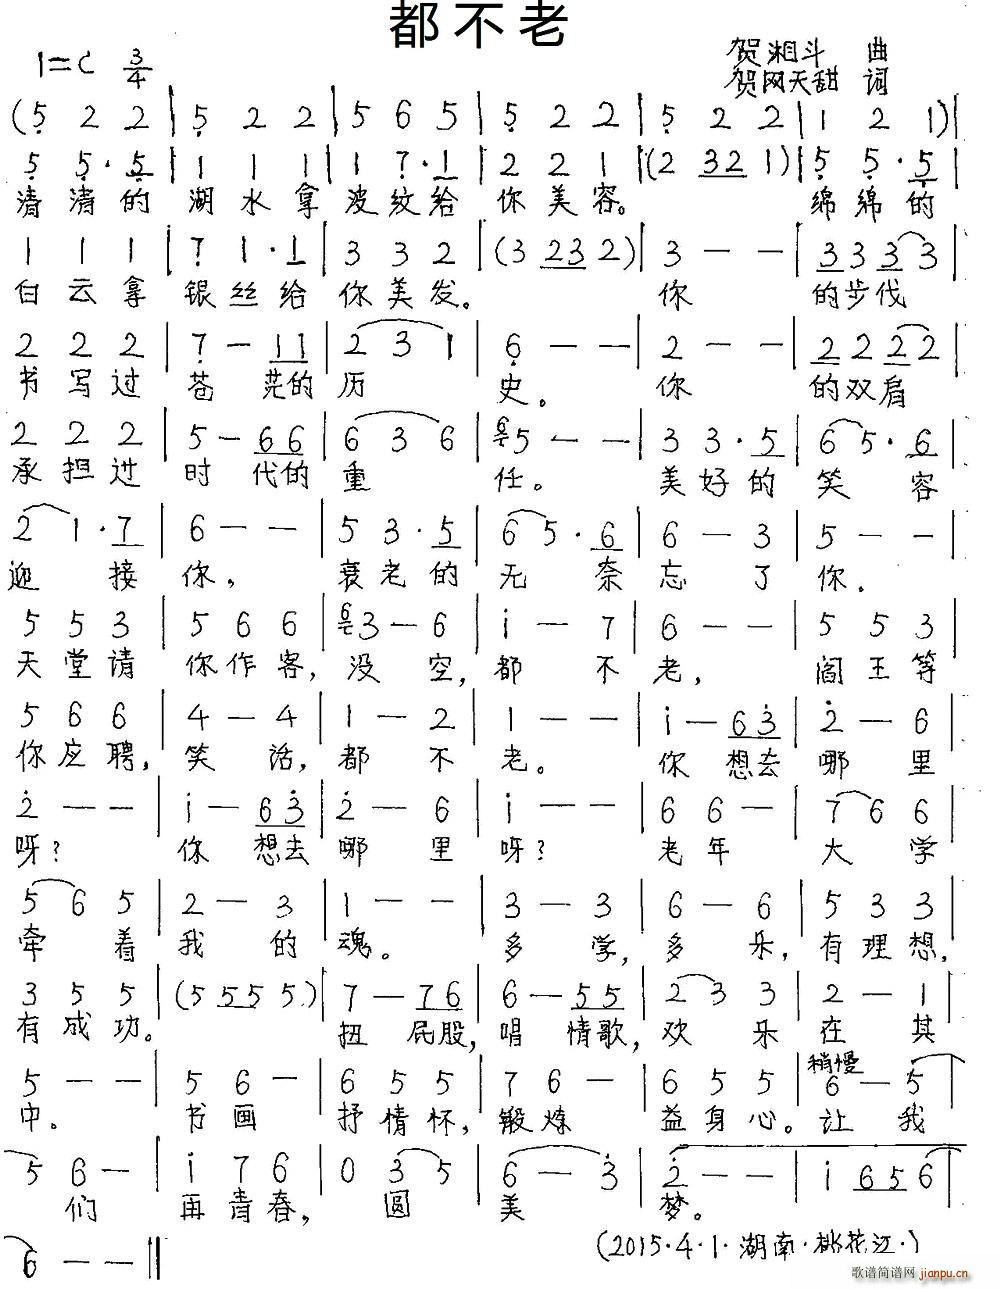 都不老
1=C 3/4
贺湘斗 曲
贺网天甜 词
(5 2 2 | 5 2 2 | 5 6 5 | 5 2 2 | 5 2 2 | 1 2 1)|
5 5· 5 | 1 1 1 | 1 7· 1 | 2 2 1 |(2 32 1)| 5 5· 5 |
清清的 湖水拿 波纹给 你美容。 绵绵的
1 1 1 | 7 1· 1 | 3 3 2 |(3 232)| 3 — — | 3 3 3 3 |
白云拿 银丝给 你美发。 你 的步伐
2 2 2 | 7 — 11 | 2 3 1 | 6 — — | 2 — — | 2 2 2 2 |
书写过 苍茫的 历 史。 你 的双肩
2 2 2 | 5 — 66 | 6 3 6 | 6 5 — — | 3 3· 5 | 6 5· 6 |
承担过 时代的 重 任。 美好的 笑容
2 1· 7 | 6 — — | 5 3· 5 | 6 5· 6 | 6 — 3 | 5 — — |
迎接 你, 衰老的 无奈 忘了 你.
5 5 3 | 5 6 6 | 6 3 — 6 | i — 7 | 6 — — | 5 5 3 |
天堂请 你作客, 没空, 都不 老, 阎王等
5 6 6 | 4 — 4 | 1 — 2 | 1 — — | i — 63 | 2 — 6 |
你应聘, 笑话, 都不 老。 你想去 哪里
2 — — | i — 63 | 2 — 6 | i — — | 6 6 — | 7 6 6 |
呀? 你想去 哪里 呀? 老年 大学
5 6 5 | 2 — 3 | 1 — — | 3 — 3 | 6 — 6 | 5 3 3 |
牵着 我的 魂。 多学, 多乐, 有理想,
3 5 5 |(5 55 5.)| 7 — 76 | 6 — 55 | 2 3 3 | 2 — 1 |
有成功。 扭屁股, 唱情歌, 欢乐 在其
稍慢
5 — — | 5 6 — | 6 5 5 | 7 6 — | 6 5 5 | 6 — 5 |
中。 书画 抒情怀, 锻炼 益身心。 让我
5 6 — | i 7 6 | 0 3 5 | 6 — 3 | 2 — — | i 656 |
们 再青春, 圆 美 梦。
6 — — ‖
(2015·4·1·湖南·桃花江·)
歌谱简谱网 jianpu.cn